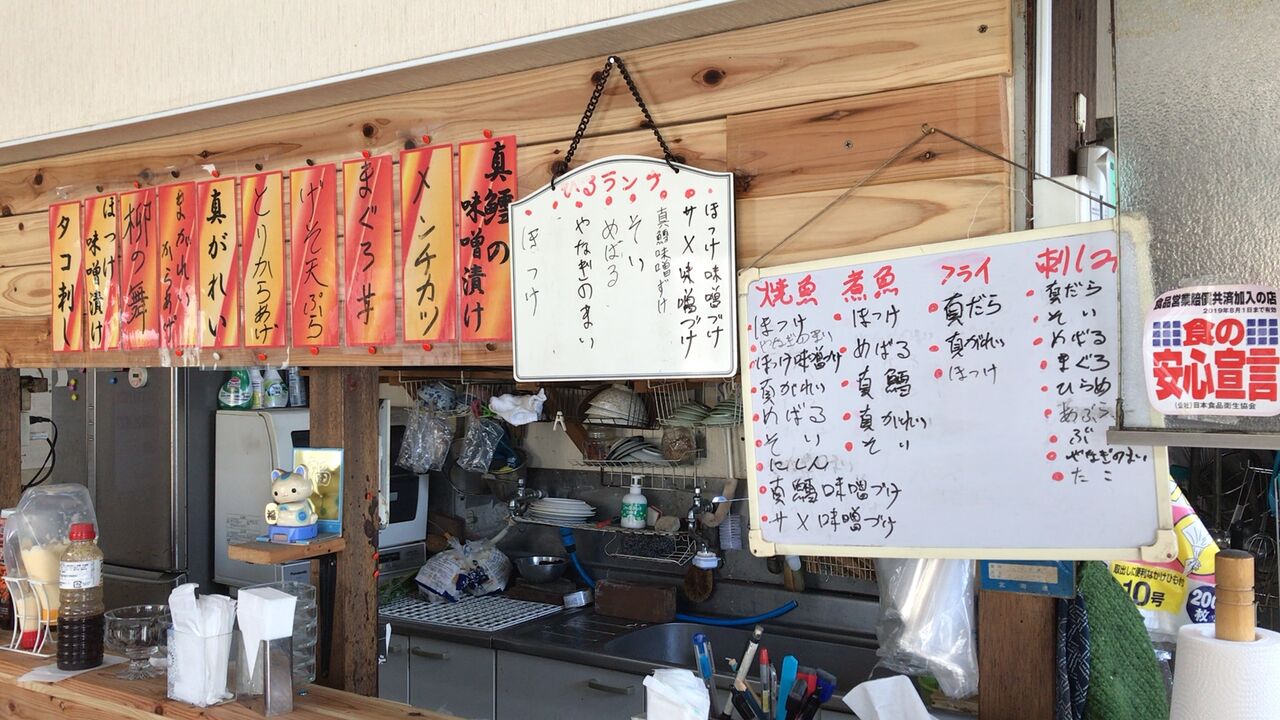 真鱈の
味噌漬け
メンチカツ
まぐろ丼
げそ天ぷら
とりからあげ
真がれい
まがれい
からあげ
柳の舞
ほっけ
味噌漬け
タコ刺し
ひるランチ
ほっけ味噌づけ
サメ味噌づけ
真鱈味噌づけ
そい
めばる
やなぎのまい
ほっけ
焼魚
ほっけ
やなぎのまい
ほっけ味噌づけ
真がれい
めばる
そい
にしん
真鱈味噌づけ
サメ味噌づけ
煮魚
ほっけ
めばる
真鱈
真かれい
そい
フライ
真だら
真がれい
ほっけ
刺しみ
真だら
そい
めばる
まぐろ
ひらめ
あぶら
ぶ
やなぎのまい
たこ
食品営業賠償共済加入の店
2019年8月1日まで有効
食の
安心宣言
(公社)日本食品衛生協会
取出してなかけひも付
10号
200
枚
北海道
福